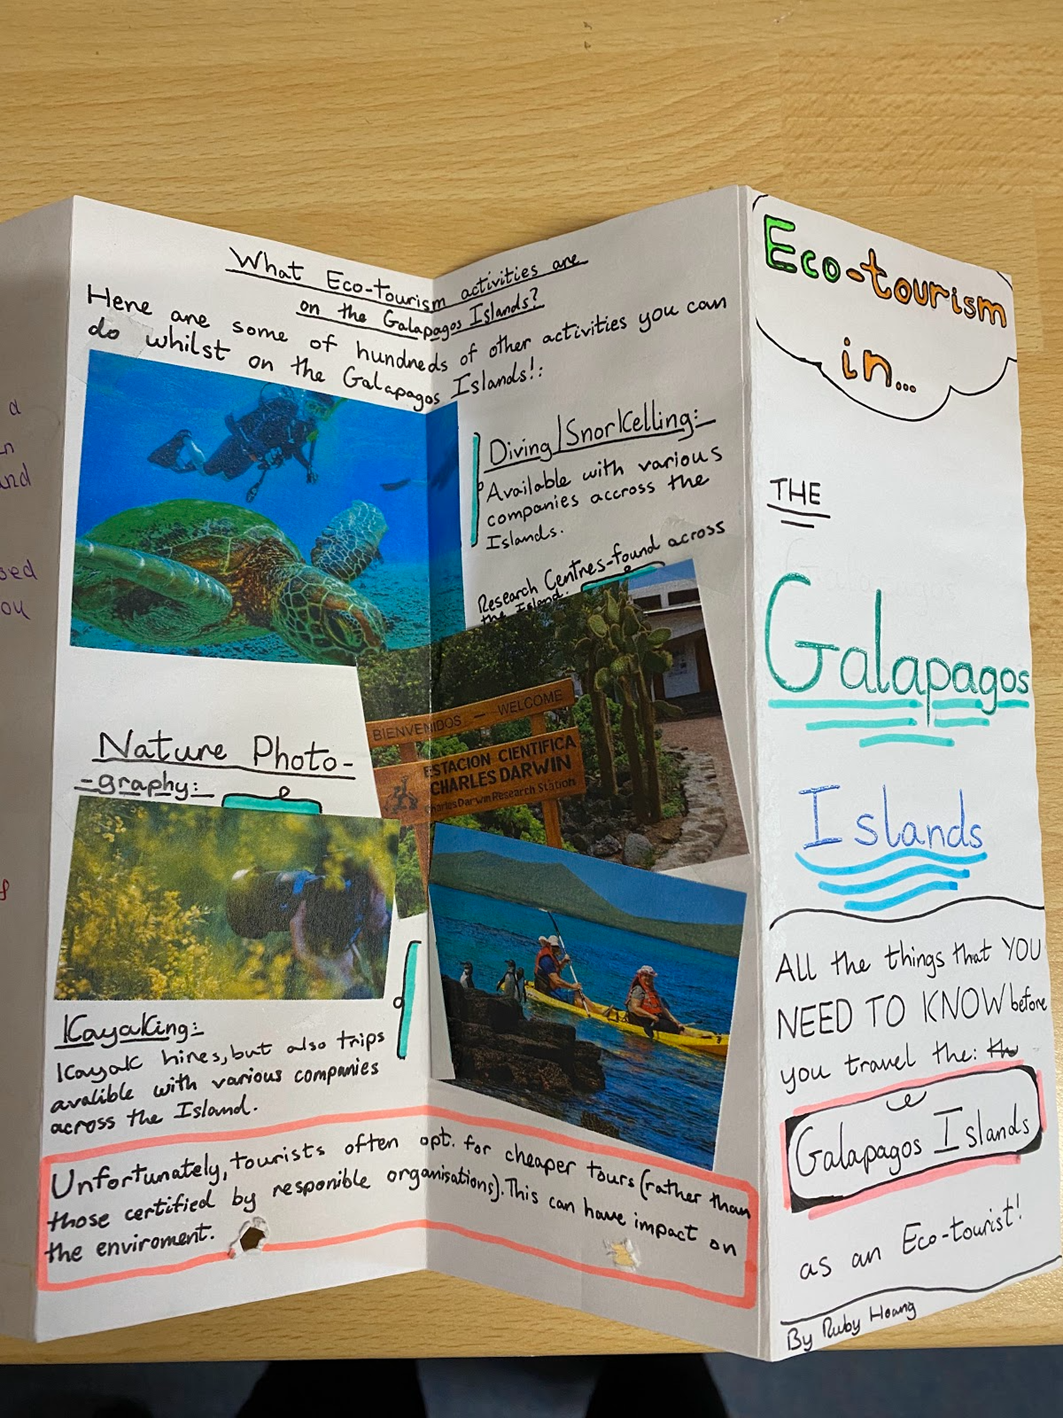 a
n
and
sed
you
What Eco-tourism activities are
on the Galapagos Islands?
Here are some of hundreds of other activities you can
do whilst on the Galapagos Islands!:
Diving/Snorkelling:
Available with various
companies accross the
Islands.
Research Centres-found across
the Island.
BIENVENIDOS — WELCOME
ESTACION CIENTIFICA
CHARLES DARWIN
Charles Darwin Research Station
Nature Photo-
-graphy:
Kayaking:
Kayak hires, but also trips
avalible with various companies
across the Island.
Unfortunately, tourists often opt. for cheaper tours (rather than
those certified by responible organisations). This can have impact on
the enviroment.
Eco-tourism
in...
THE
Galapagos
Islands
All the things that YOU
NEED TO KNOW before
you travel the:
Galapagos Islands
as an Eco-tourist!
By Ruby Hoang